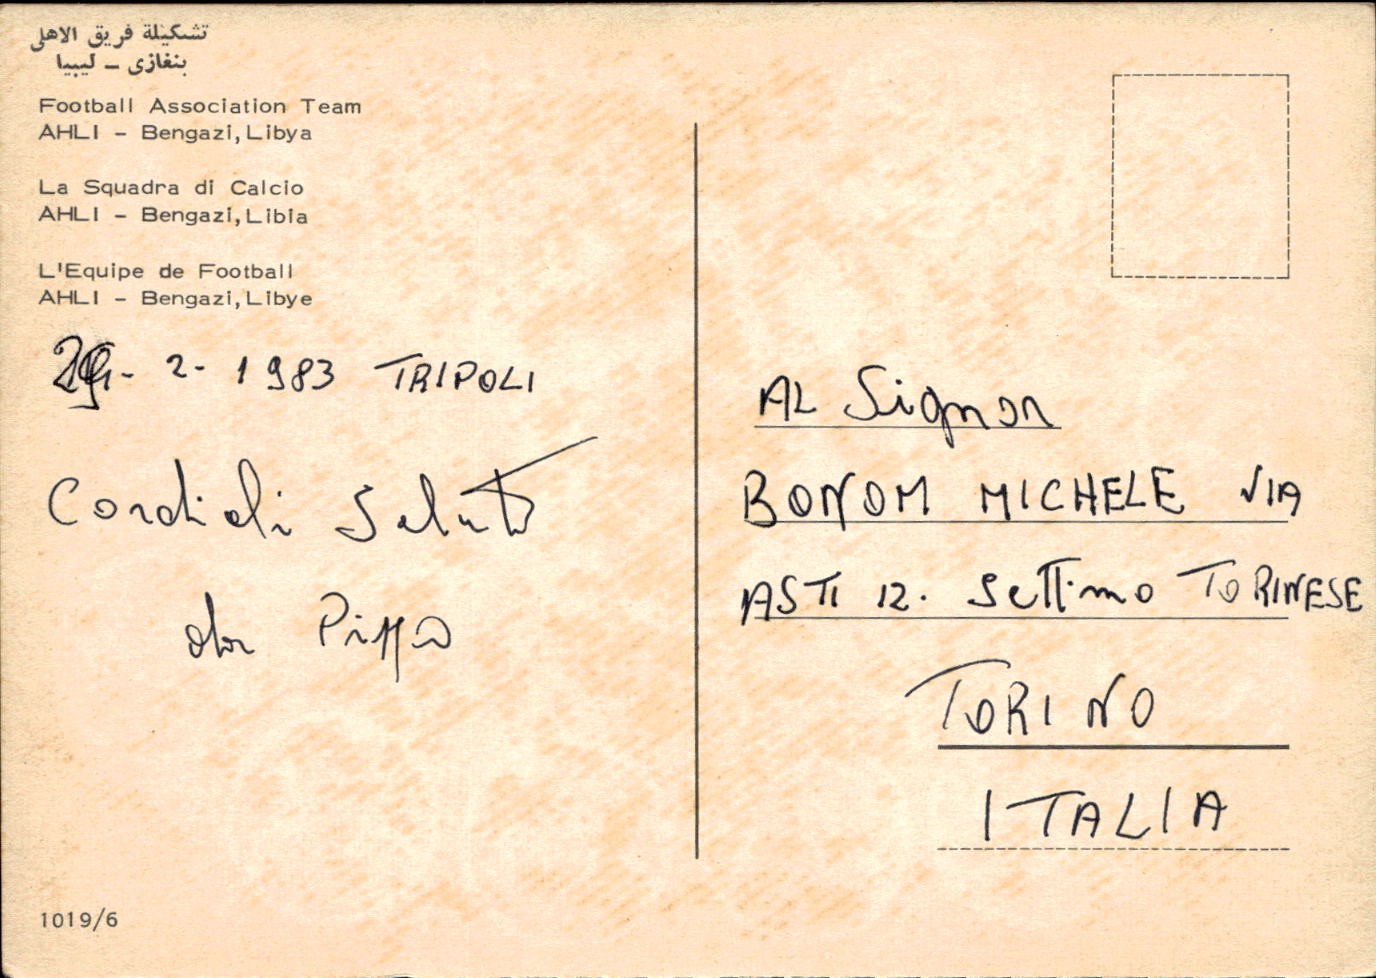 تشكيلة فريق الاهلى
بنغازى ــ ليبيا
Football Association Team
AHLI - Bengazi, Libya
La Squadra di Calcio
AHLI - Bengazi, Libia
L'Equipe de Football
AHLI - Bengazi, Libye
- 2 - 1983 TRIPOLI
Cordiali Saluti
da
1019/6
AL Signor
BONOM MICHELE VIA
ASTI 12. Settimo TORINESE
TORINO
ITALIA